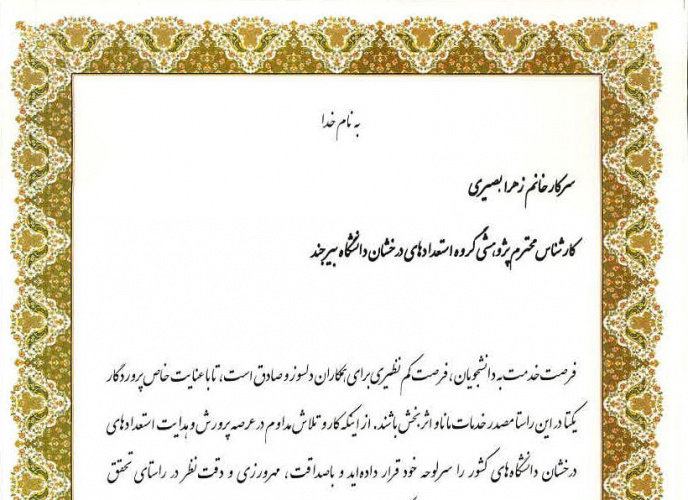 به نام خدا
سرکار خانم زهرا بصیری
کارشناس محترم پژوهشی گروه استعدادهای درخشان دانشگاه بیرجند
فرصت خدمت به دانشجویان، فرصت کم نظیری برای همکاران دلسوز و صادق است، تا با عنایت خاص پروردگار
یکتا در این راستا مصدر خدمات مانا و اثر بخش باشند. از اینکه کار و تلاش مداوم در عرصه پرورش و هدایت استعدادهای
درخشان دانشگاه های کشور را سرلوحه خود قرار داده اید و باصداقت، مهرورزی و دقت نظر در راستای تحقق